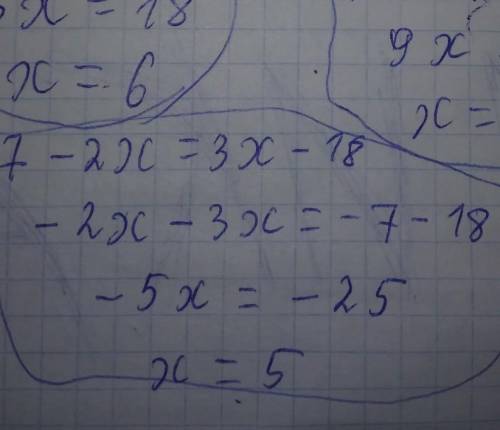 x = 18
x = 6
9x
x =
7 - 2x = 3x - 18
- 2x - 3x = - 7 - 18
- 5x = - 25
x = 5